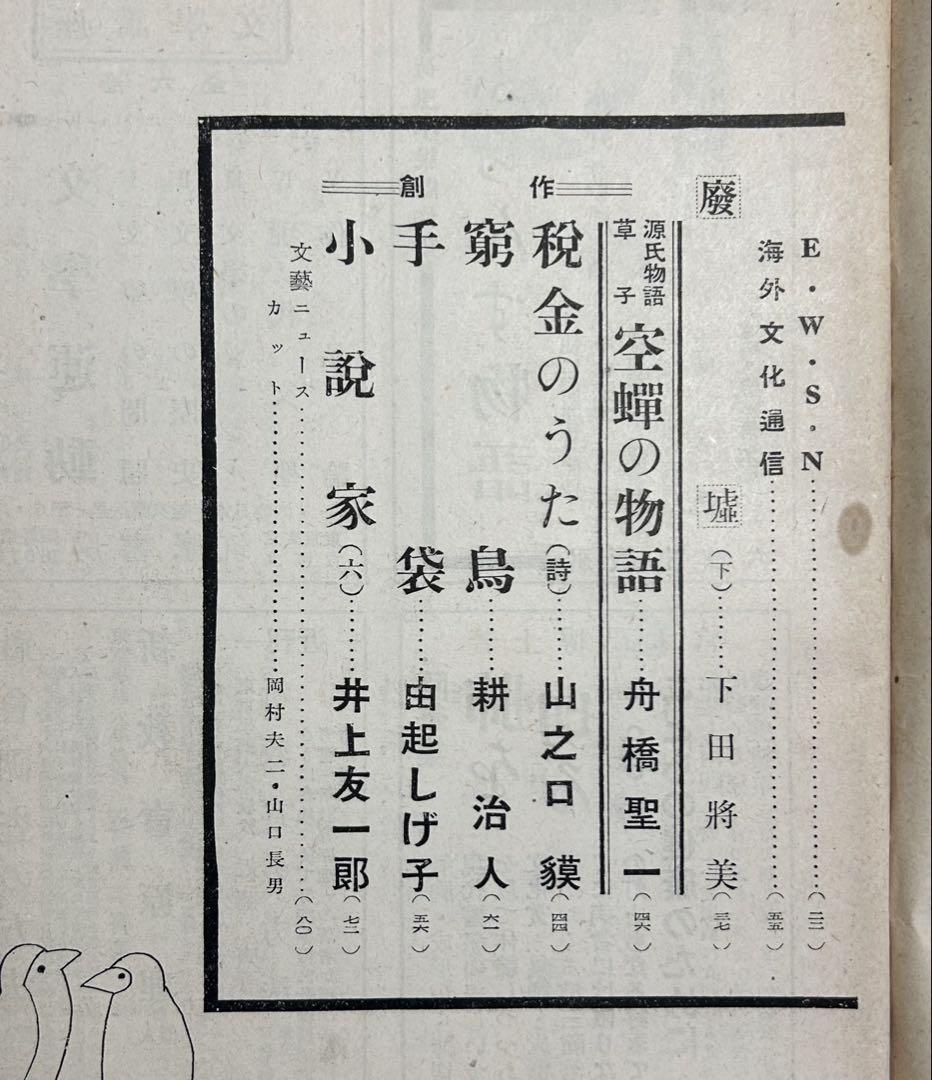 E・W・S・N……(二二)
海外文化通信……(五五)
廢墟(下)……下田將美(三七)
源氏物語草子 空蟬の物語……舟橋聖一(四六)
創作
税金のうた(詩)……山之口貘(四四)
窮鳥……耕治人(六一)
手袋……由起しげ子(五六)
小説家(六)……井上友一郎(七二)
文藝ニュース……(八〇)
カット……岡村夫二・山口長男